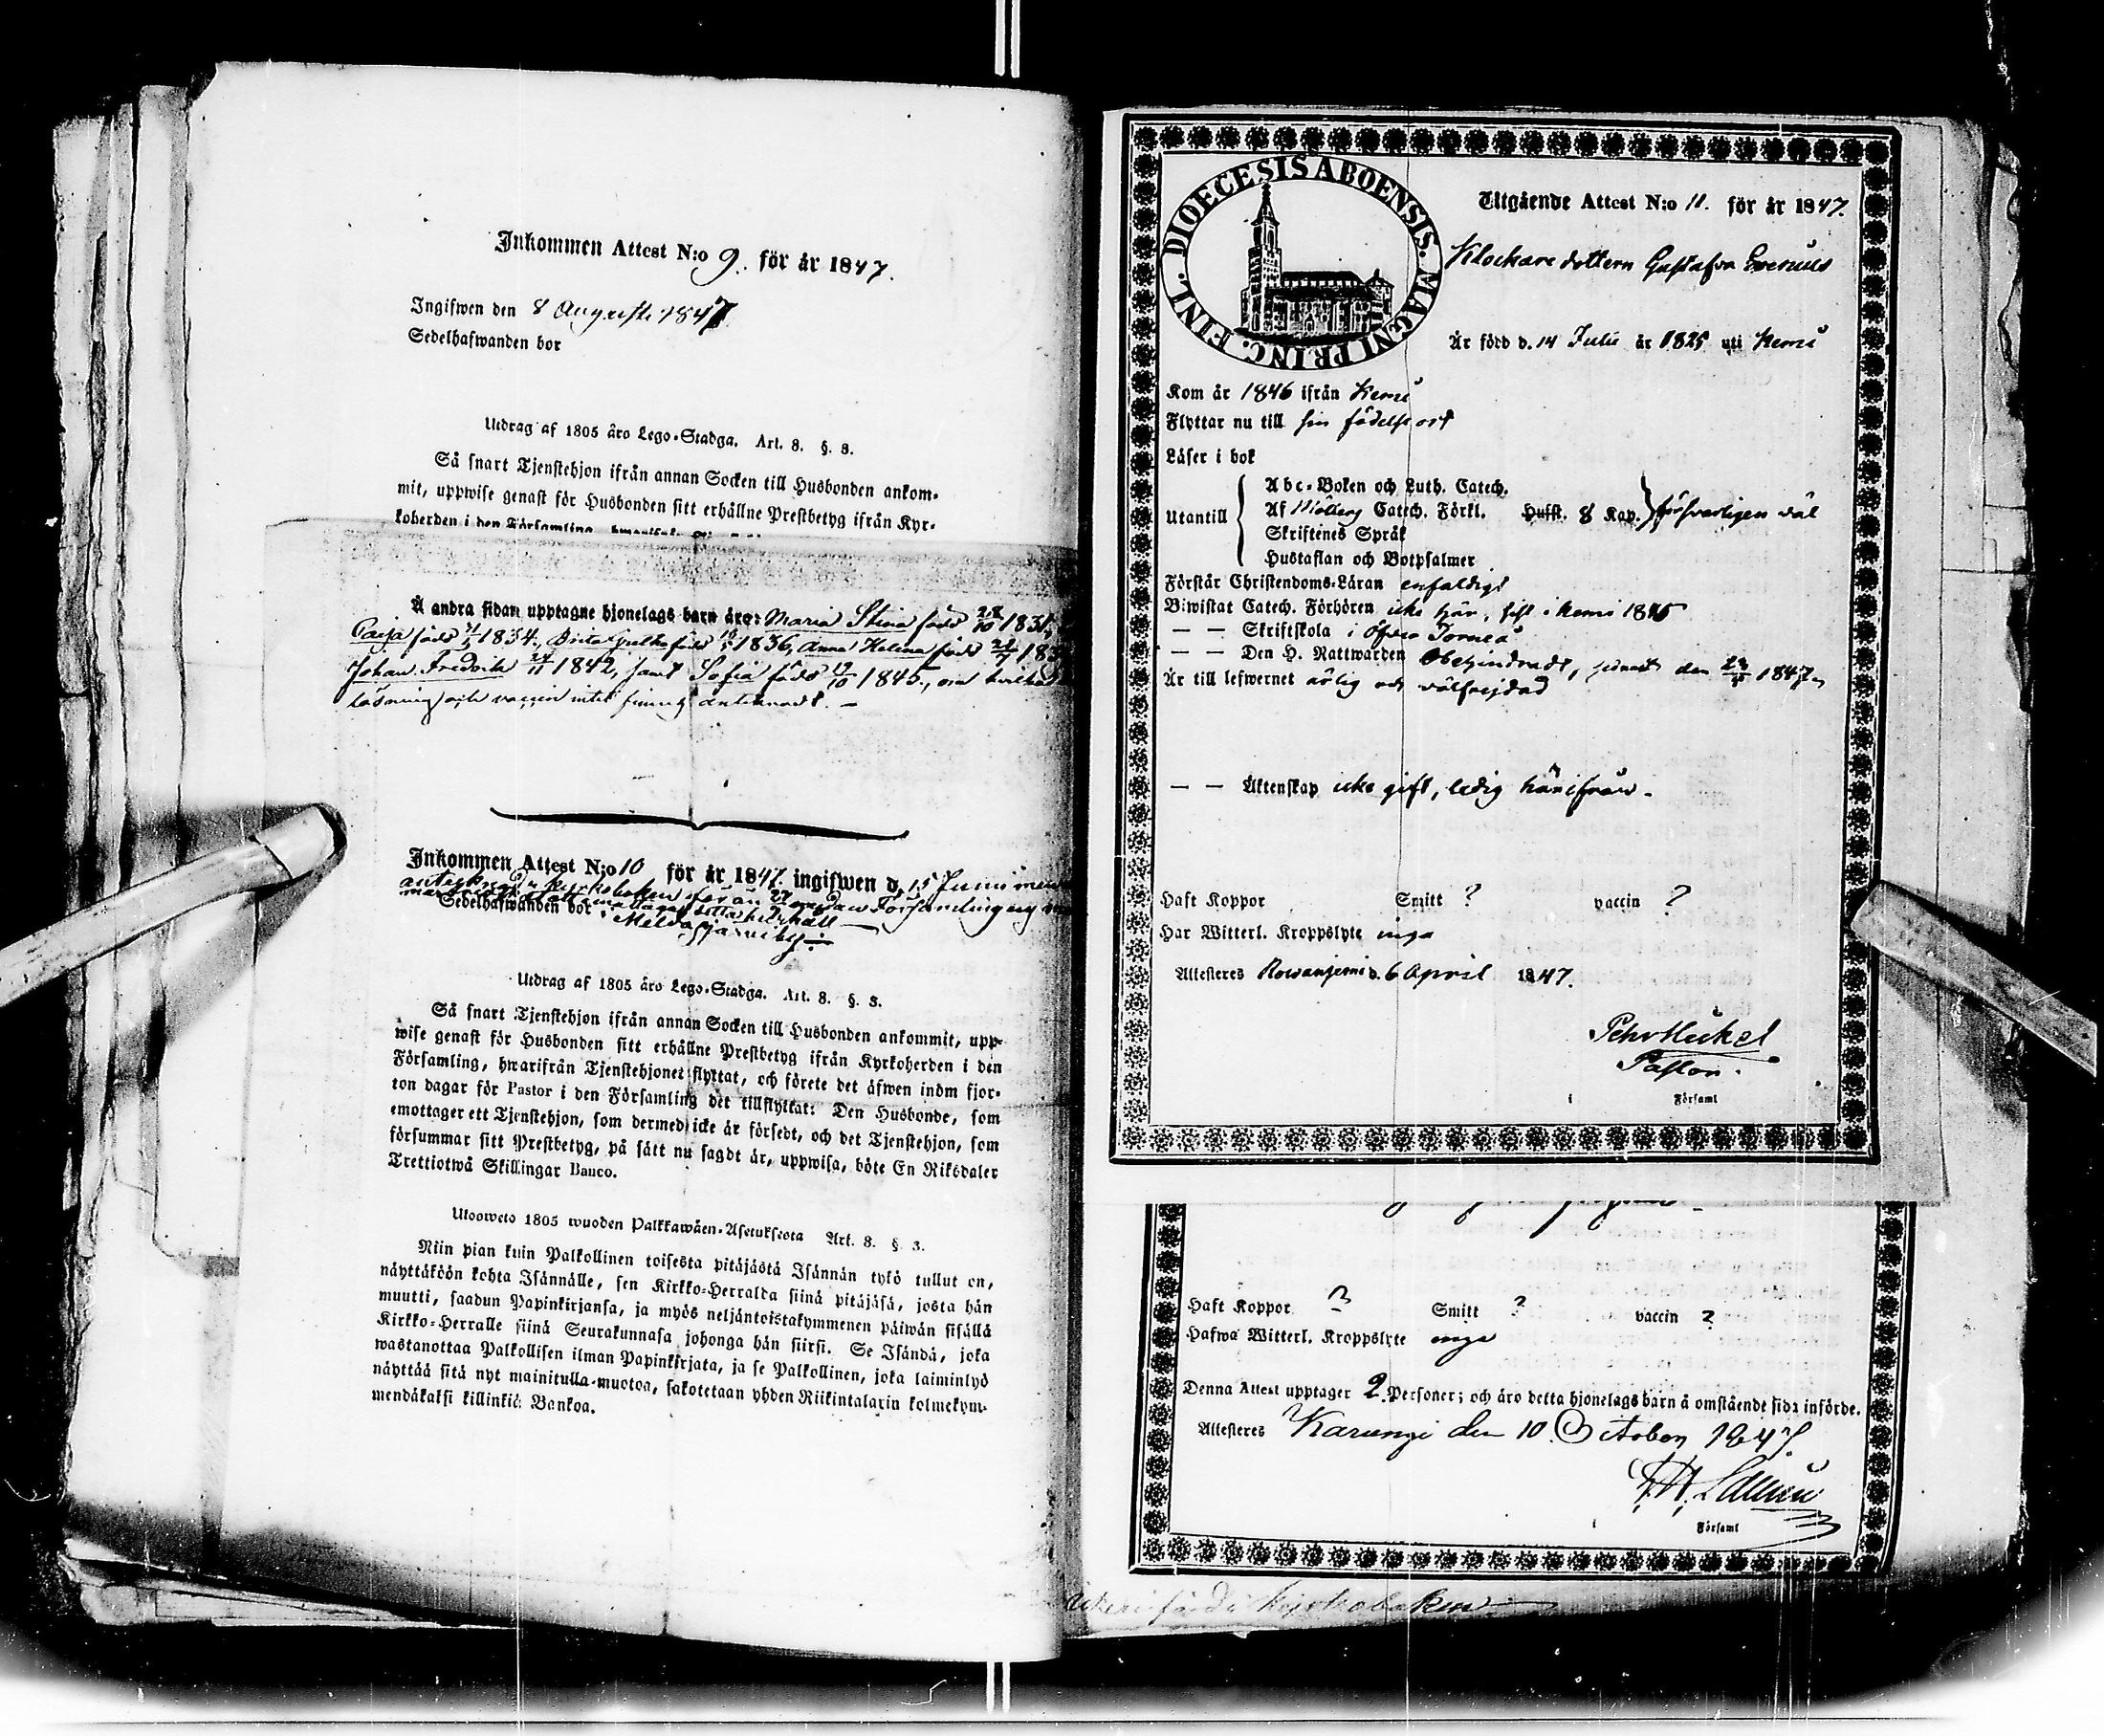 Inkommen Attest N:o 9. för år 1847.
Ingifwen den 8 Augusti 1847
Sedelhafwanden bor
Utdrag af 1805 åro Lego-Stadga. Art. 8. §. 8.
Så snart Tjenstehjon ifrån annan Socken till Husbonden ankom-
mit, uppwise genast för Husbonden sitt erhållne Prestbetyg ifrån Kyr-
koherden i den Församling,
Å andra sidan upptagne hjonelags barn äro: Maria Stina född 28/10 1831,
Caija född 1834, Brita född 1836, Anna Helena född
Johan Fredrik 24/11 1842, samt Sofia född 19/10 1845, om hvilkas
läsning och vaccin intet finnes antecknadt. –
Inkommen Attest N:o 10 för år 1847. ingifwen d. 15 Junii men
Sedelhafwanden bor
Utdrag af 1805 åro Lego-Stadga. Art. 8. §. 8.
Så snart Tjenstehjon ifrån annan Socken till Husbonden ankommit, upp-
wise genast för Husbonden sitt erhållne Prestbetyg ifrån Kyrkoherden i den
Församling, hwarifrån Tjenstehjonet flyttat, och förete det äfwen inom fjor-
ton dagar för Pastor i den Församling det tillflyttat: Den Husbonde, som
emottager ett Tjenstehjon, som dermed icke är försedt, och det Tjenstehjon, som
försummar sitt Prestbetyg, på sätt nu sagdt är, uppwisa, böte En Riksdaler
Trettiotwå Skillingar Banco.
Ulosweto 1805 wuoden Palkkawäen-Asetuksesta Art. 8. § 3.
Niin pian kuin Palkollinen toisesta pitäjästä Isännän työ tullut on,
näyttäköön kohta Isännälle, sen Kirkko-Herralda siinä pitäjäsä, josta hän
muutti, saadun Papinkirjansa, ja myös neljäntoistakymmenen päiwän sisällä
Kirkko-Herralle siinä Seurakunnasa johonga hän siirsi. Se Isändä, joka
wastanottaa Palkollisen ilman Papinkirjata, ja se Palkollinen, joka laiminlyö
näyttää sitä nyt mainitulla muotoa, sakotetaan yhden Riikintalarin kolmekym-
mendäkaksi killinkiä Bankoa.
DIOECESIS ABOENSIS. MAGNI PRINC. FINL.
Utgående Attest N:o 11. för år 1847.
Klockare dottern Gustafva
Är född d. 14 Julii år 1825 uti Kemi
Kom år 1846 ifrån Kemi
Flyttar nu till sin födelse ort
Läser i bok
Abc-Boken och Luth. Catech.
Utantill Af Möllers Catech. Förkl. Husst. 8 Kap. försvarligen väl
Skriftenes Språk
Hustaflan och Botpsalmer
Förstår Christendoms-Läran enfaldigt
Biwistat Catech. Förhören icke här, sist i Kemi 1845
— — Skriftskola i Öfver Torneå
— — Den H. Nattwarden Obehindradt, senast den 1847
Är till lefwernet ärlig och välfrejdad
— — Äktenskap icke gift, ledig härifrån.
Haft Koppor Smitt ? vaccin ?
Har Witterl. Kroppslyte inga
Attesteres Rowaniemi d. 6 April 1847.
Pehr Heickel
Pastor.
i Församl
Haft Koppor ? Smitt ? vaccin ?
Hafwa Witterl. Kroppslyte inga
Denna Attest upptager 2 Personer; och äro detta hjonelags barn å omstående sida införde.
Attesteres Karungi den 10 October 1847.
i Församl